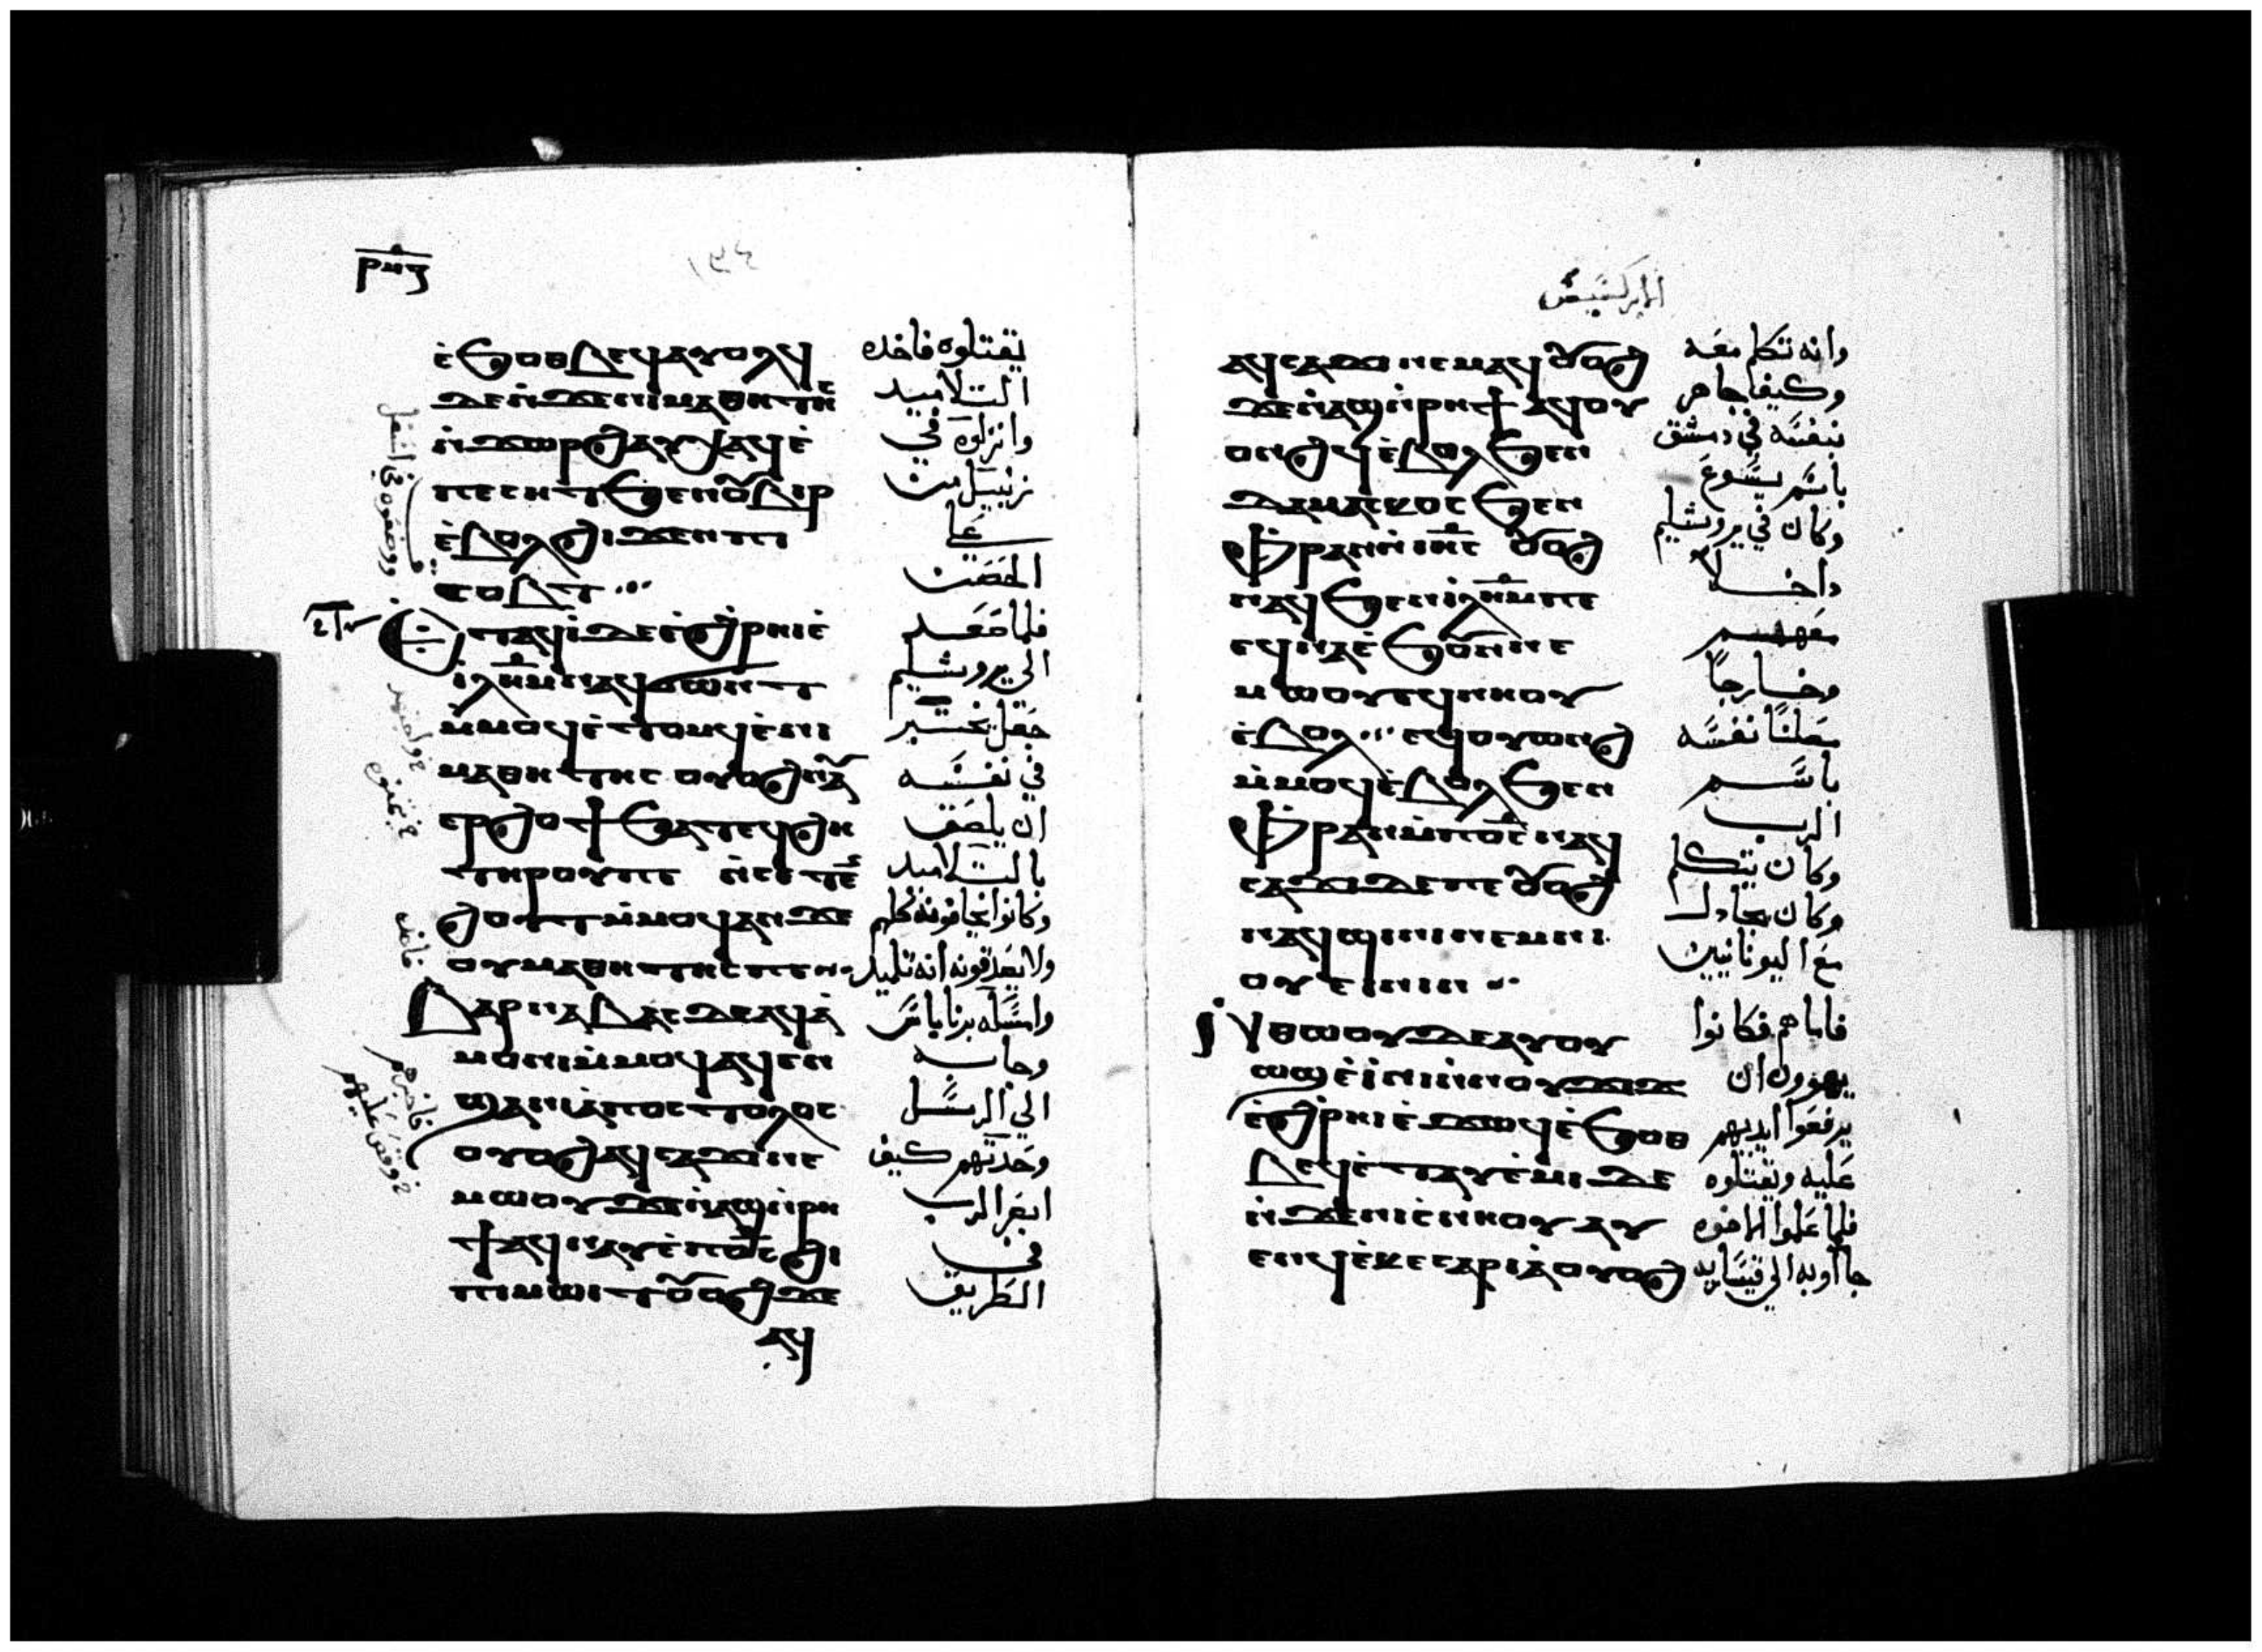 ⲣⲙⲍ
ⲉ̀ϧⲟⲑⲃⲉϥⲁⲩⲟⲗϥ
يقتلوه فاخده
ⲇⲉⲛ̀ϫⲉⲛⲓⲙⲁⲑⲏⲧⲏⲥ
التلاميد
ⲛ̀ϫⲱⲣϩⲁⲩⲭⲁϥⲉ̀
وانزلوه في
ⲡⲉⲥⲏⲧϧⲉⲛⲟⲩⲃⲓⲣ
زنبيل من
ⲉ̀ⲃⲟⲗϩⲓϫⲉⲛⲡⲓ
علي
ⲥⲟⲃⲧ
الحصن
ⲉⲧⲁϥⲓ̀ⲇⲉⲉ̀ϩⲣⲏⲓⲉ̀
فلما صعد
ⲓⲗⲏⲙⲛⲁϥϭⲱⲛⲧ
الي يروشليم
ⲙ̀ⲙⲟϥⲉ̀ⲧⲟⲙϥⲉ̀ⲛⲓ
جعل يختبر
ⲙⲁⲑⲏⲧⲏⲥ ⲟⲩⲟϩⲛⲁⲩ
في نفسه
ⲉⲣϩⲟϯϧⲁⲧⲉϥϩⲏ
ان يلصق
ⲧⲏⲣⲟⲩⲡⲉ ⲛ̀ⲥⲉⲧⲉⲛ
بالتلاميد
ϩⲟⲩⲧⲙ̀ⲙⲟϥⲁⲛϫⲉ
وكانوا يخافونه كلهم
ⲟⲩⲙⲁⲑⲏⲧⲏⲥⲡⲉ
ولا يصدقونه انه تلميد
ⲃⲁⲣⲛⲁⲃⲁⲥⲇⲉⲁϥⲁ̀
وامسكه برناباس
ⲙⲟⲛⲓⲙ̀ⲙⲟϥⲁϥⲉⲛϥ
وجابه
ϣⲁⲛⲓⲁ̀ⲡⲟⲥⲧⲟⲗⲟⲥ
الي الرسل
ⲟⲩⲟϩⲁϥⲥⲁϫⲓⲛⲉ
وحدتهم كيف
ⲙⲱⲟⲩϫⲉⲛ̀ⲁϣⲛ̀ⲣⲏ
ابصر الرب
ϯⲁϥⲛⲁⲩⲉ̀ⲡⲟ̅ⲥ̅ϩⲓ
في
ⲡⲓⲙⲱⲓⲧⲟⲩⲟϩϫⲉ
الطريق
ⲁϥ
الابركسيس
ⲁϥⲥⲁϫⲓⲛⲉⲙⲁϥⲟⲩⲟϩ
وانه تكلم معه
ϫⲉⲛ̀ⲁϣⲛ̀ⲣⲏϯⲁϥⲟⲩ
وكيف جاهر
ⲟⲛϩϥⲉ̀ⲃⲟⲗϧⲉⲛ
بنفسه في دمشق
ⲇⲁⲙⲁⲥⲕⲟⲥϧⲉⲛ
باسم يسوع
ⲫⲣⲁⲛⲛ̀ⲓⲏⲥ ⲟⲩⲟϩ
وكان في يروشليم
ⲛⲁϥϧⲉⲛⲓⲗⲏⲙⲡⲉ
داخلا
ⲉϥⲛⲁⲉ̀ϧⲟⲩⲛⲛⲉ
معهم
ⲙⲱⲟⲩⲉϥⲛⲏⲟⲩ
وخارجاً
ⲉ̀ⲃⲟⲗ ⲉϥⲟⲩⲱⲛϩ
معلنًا نفسه
ⲙ̀ⲙⲟϥⲉ̀ⲃⲟⲗϧⲉⲛ
باسم
ⲫⲣⲁⲛⲙ̀ⲡⲟ̅ⲥ̅ⲛⲁϥ
الرب
ⲥⲁϫⲓⲇⲉⲡⲉⲟⲩⲟϩ
وكان يتكلم
ⲛⲁϥϣⲓⲛⲓⲛⲉⲙⲛⲓ
وكان يجادل
ⲟⲩⲉⲓⲛⲓⲛ
مع اليونانيين
ⲛ̀ⲑⲱⲟⲩⲇⲉⲁⲩⲟⲩ
فاما هم فكانوا
ⲱϣⲉ̀ⲓ̀ⲛⲓⲛ̀ⲛⲟⲩϫⲓϫ
يهوون ان
ⲉ̀ϩⲣⲏⲓⲉ̀ϫⲱϥⲉ̀ϧⲟⲑ
يرفعوا ايديهم
ⲃⲉϥⲉ̀ⲧⲁⲩⲉ̀ⲙⲓⲇⲉ
عليه ويقتلوه
ⲛ̀ϫⲉⲛⲓⲥⲛⲏⲟⲩⲁⲩ
فلما علموا الاخوه
ⲉⲛϥⲉ̀ⲕⲉⲥⲁⲣⲓⲁ̀ⲟⲩⲟϩ
جااوبه الي قيساريه